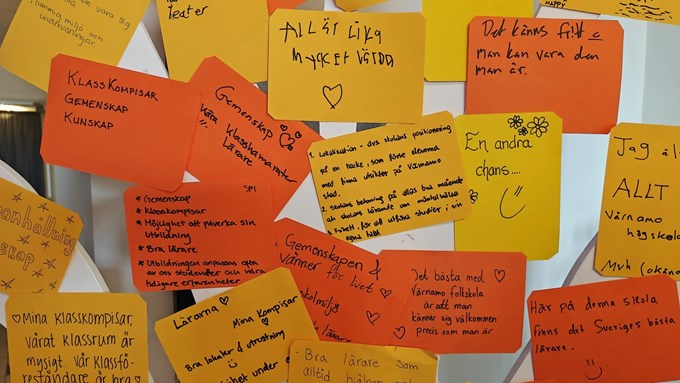 vara sig
miljö och
undervisningar
teater
ALLAS LIKA
MYCKET VÄRDA
Det känns fritt o
man kan vara den
man är.
HAPPY
KLASSKOMPISAR
GEMENSKAP
KUNSKAP
Gemenskap
klasskamarater
Lärare
1. Lokalisation - dvs skolans positionering
på en backe, som förse eleverna
med fina utsikter på Värnamo
stad.
2. Skolans betoning på allas bra mående
och skolans
3. Frihet, för att utföra studier i sin
egna takt
En andra
chans....
Jag
ALLT
Värnamo
högskola
Mvh
SPI
* Gemenskap
* Klasskompisar
* Möjlighet att påverka sin
utbildning
* Bra lärare
* Utbildningen anpassas efter
av oss studenter och våra
tidigare erfarenheter
Gemenskapen &
vänner för livet
lärare
Det bästa med
Värnamo folkskola
är att man
känner sig välkommen
precis som man är
Här på denna skola
finns det Sveriges bästa
lärare.
Mina klasskompisar,
vårat klassrum är
mysigt. Vår klassfö-
reståndare är bra
Lärarna
Mina Kompisar
Bra lokaler & utrustning
under
Bra lärare som
alltid hjälper